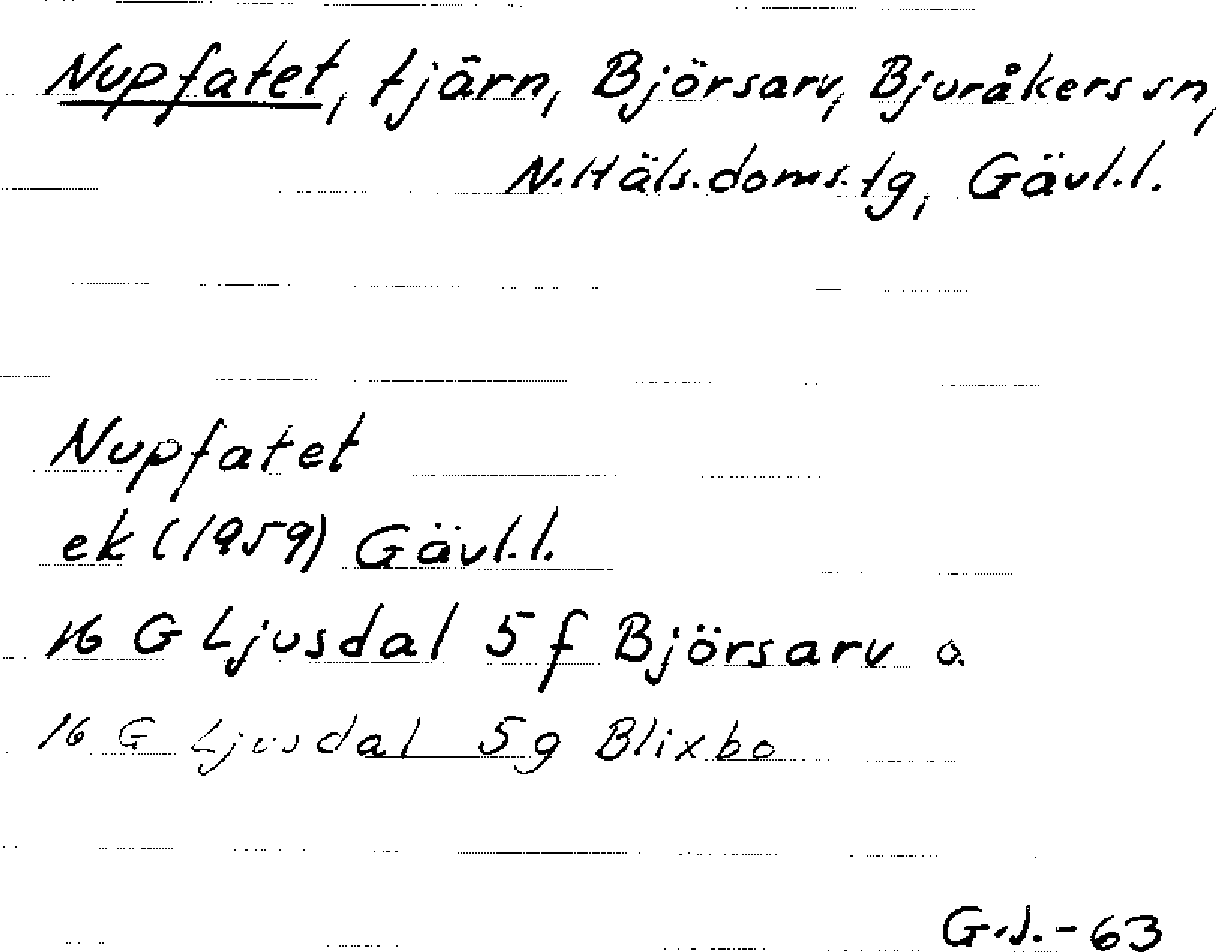 Nupfatet, tjärn, Björsarv, Bjuråkers sn,
N.Häls.doms.tg, Gävl.l.
Nupfatet
ek (1959) Gävl.l.
16 G Ljusdal 5 f Björsarv o.
16 G Ljusdal 5g Blixbo
G.J.-63